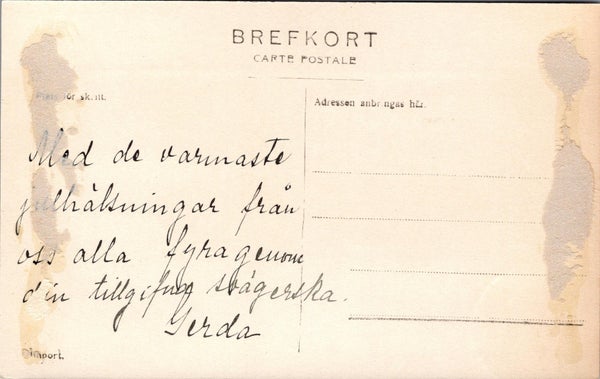 BREFKORT
CARTE POSTALE
Plats för skrift.
Adressen anbringas här.
Med de varmaste
julhälsningar från
oss alla fyra genom
din tillgifna svägerska.
Gerda
Import.